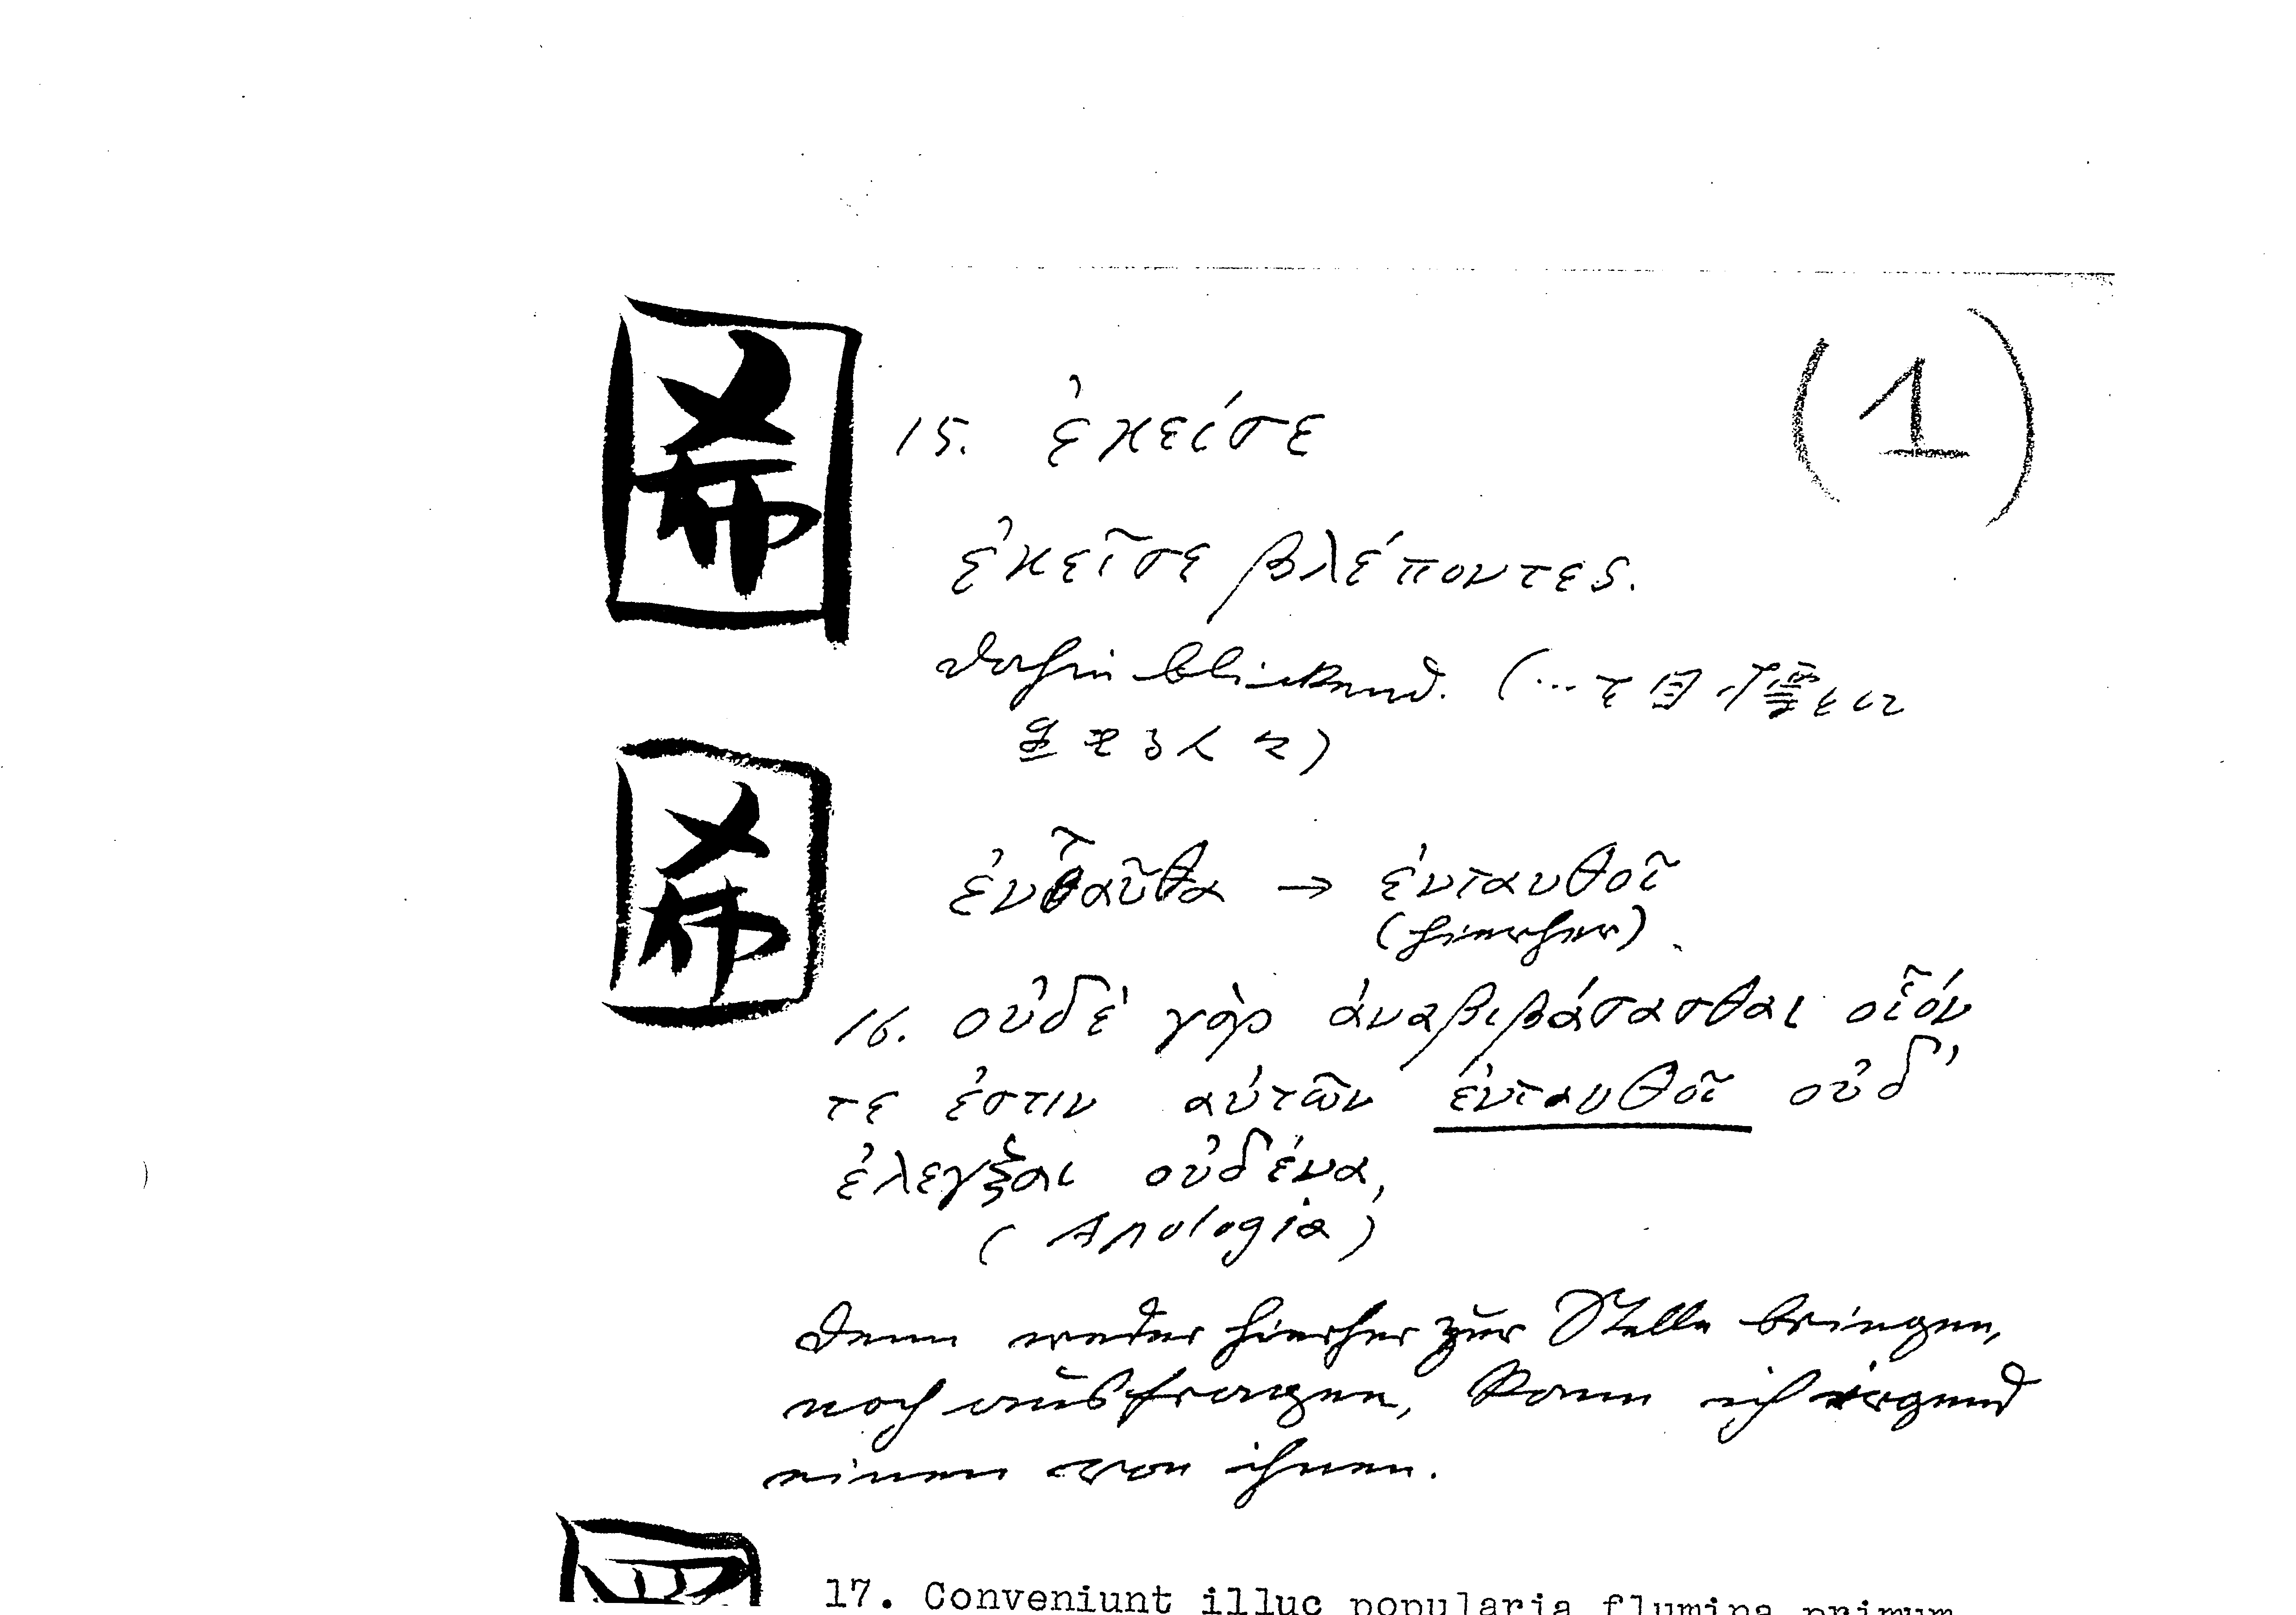 希
(1)
15. ἐκείσε
ἐκεῖσε βλέποντες.
dahin blickend. (...
る人々)
希
ἐνταῦθα → ἐνταυθοῖ
(hierher).
16. οὐδὲ γὰρ ἀναβιβάσασθαι οἷόν
τε ἐστιν αὐτῶν ἐνταυθοῖ οὐδ'
ἐλεγξαι οὐδένα,
(Apologia)
denn weder hierher zur Stelle bringen,
noch ausfragen, kann ich irgend
einen von ihnen.
17. Conveniunt illuc popularia flumina primum